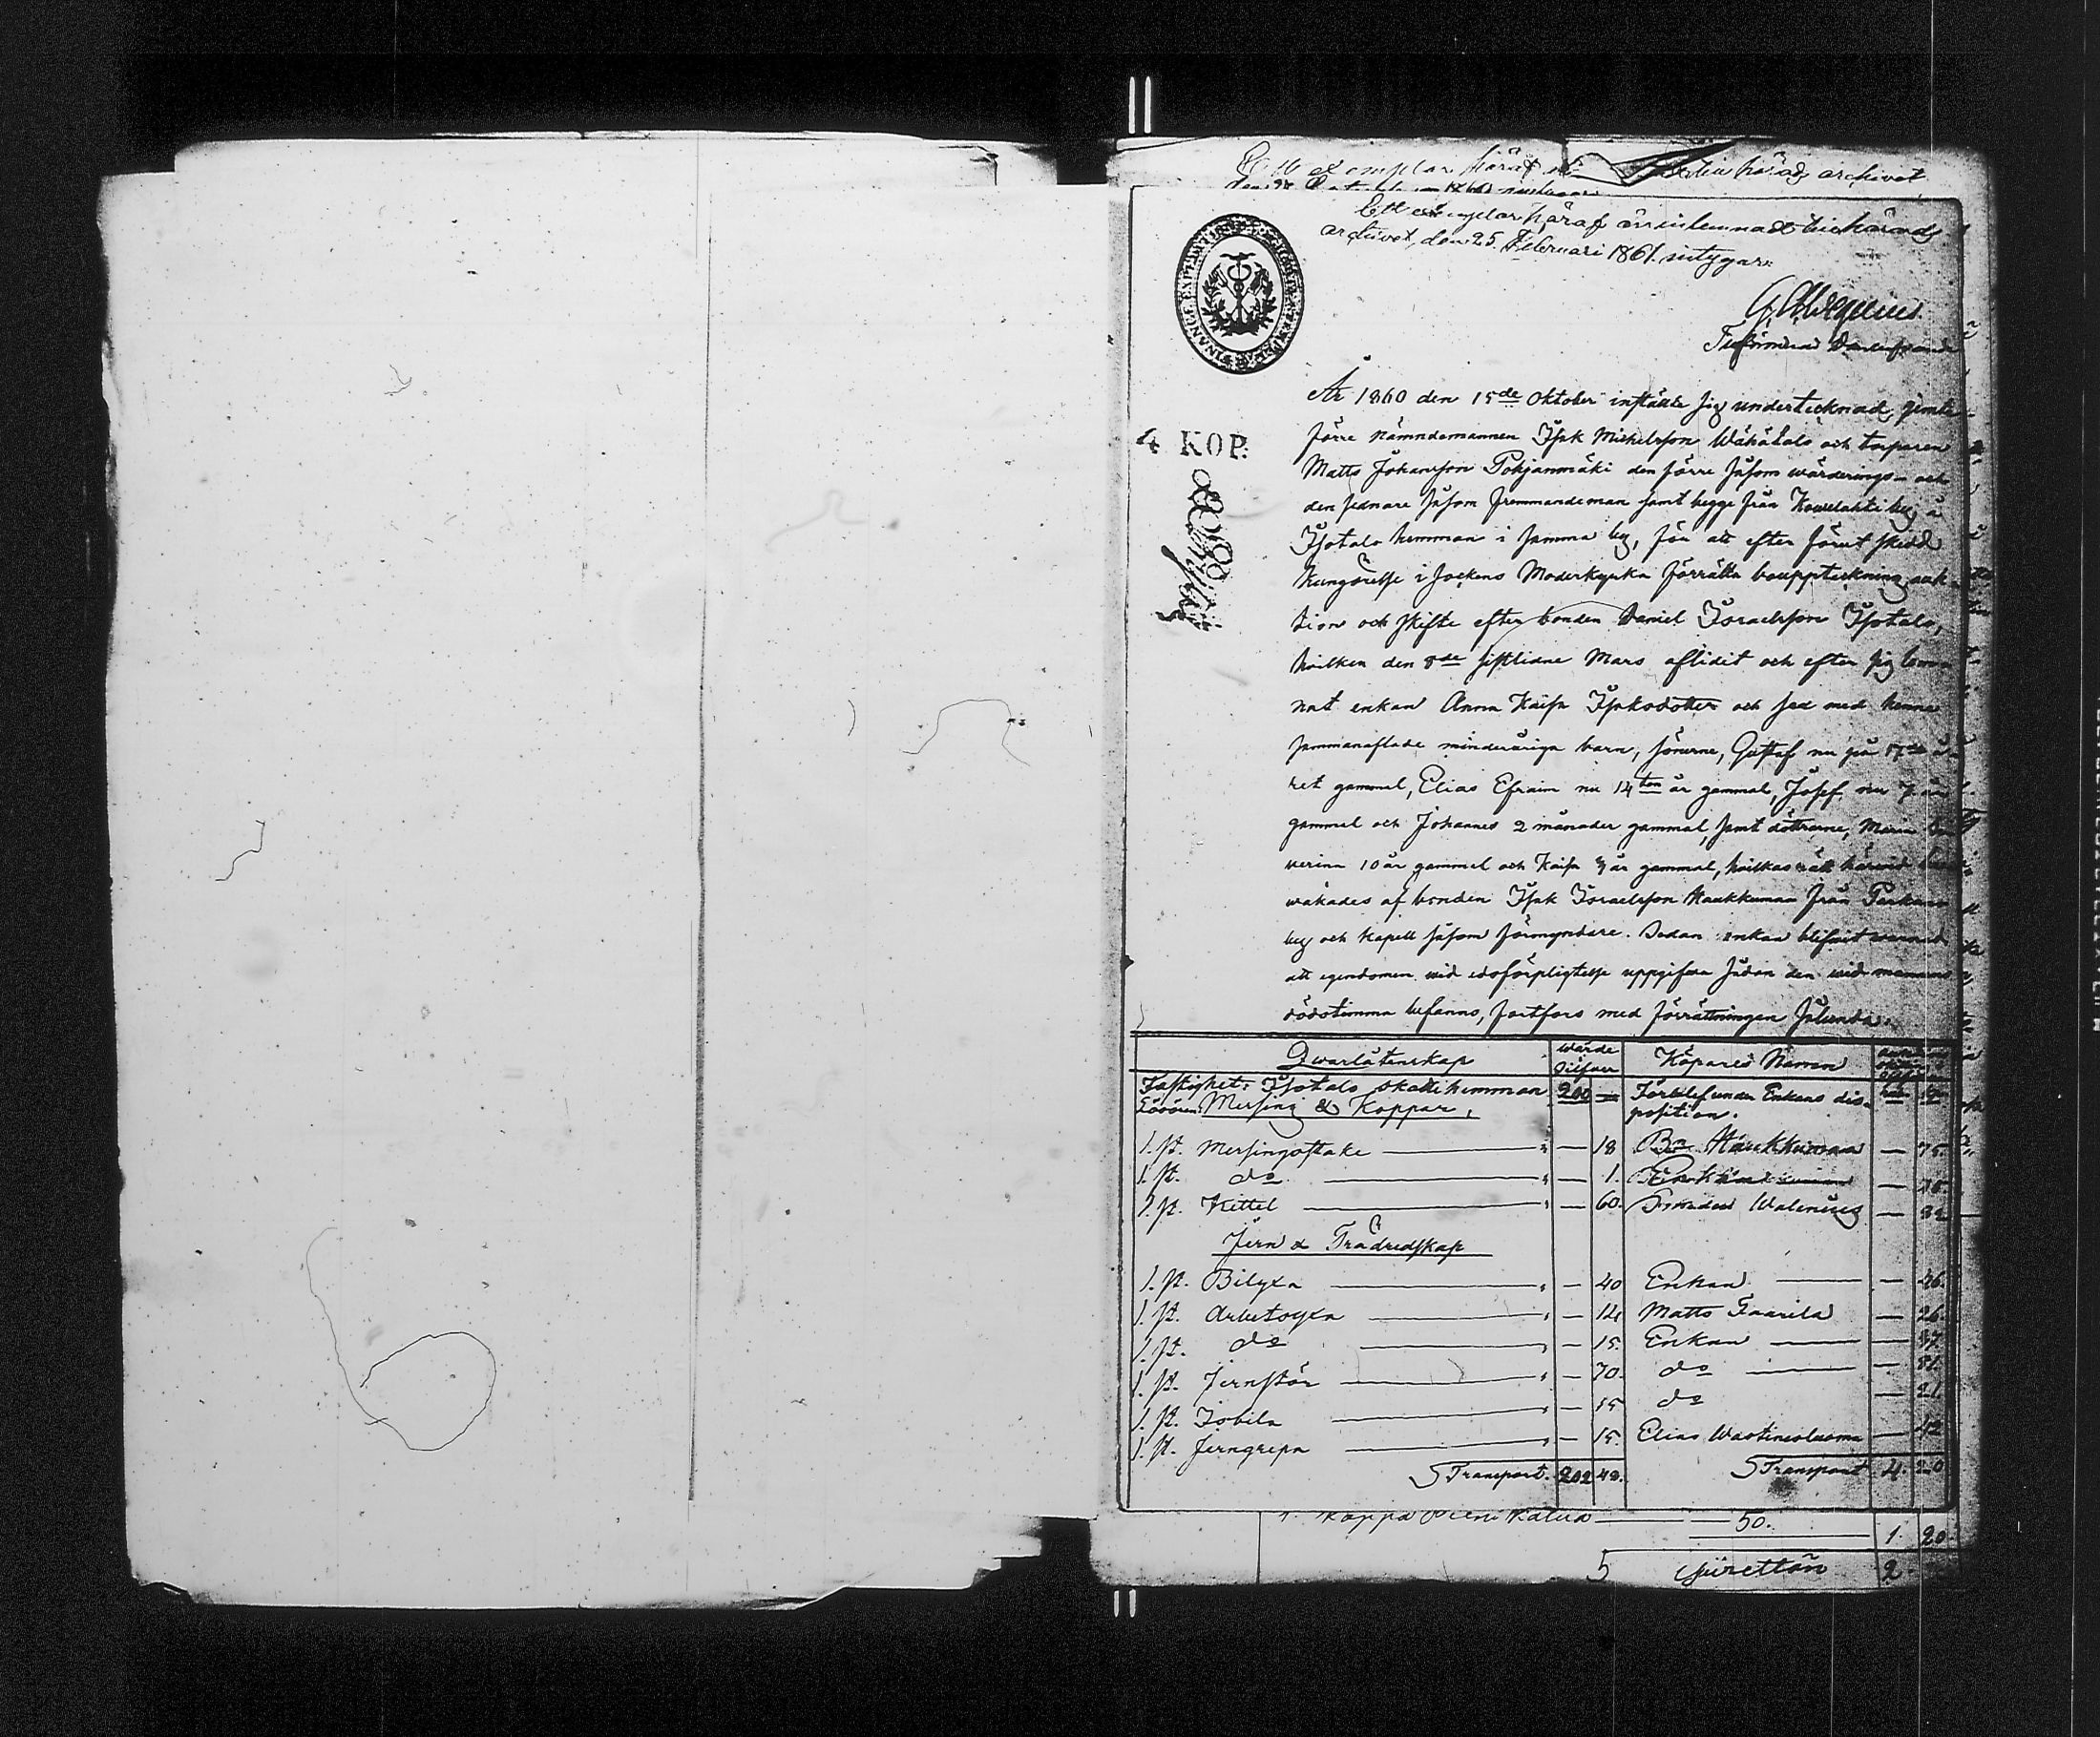 Ett exemplar häraf är till härads archivet
Ett exemplar häraf är inlemnadt till härads
archivet, den 25. Februari 1861. intygar:
År 1860 den 15de Oktober instälte sig undertecknad, jemte
4 KOP.
förre nämndemannen Isak Michelsson Wähätalo och torparen
Matts Johansson Pohjanmäki den förre såsom wärderings- och
den sednare såsom fremmandeman samt begge från Kowelahti by, å
Isotalo hemman i samma by, för att efter förut skedd
kungörelse i Sockens Moderkyrka förrätta bouppteckning, auk-
tion och skifte efter bonden Daniel Israelsson Isotalo,
hvilken den 8de sistlidne Mars aflidit och efter sig lem-
nat enkan Anna Kaisa Isaksdotter och sex med henne
sammanaflade minderåriga barn, sönerne, Gustaf nu på 17de å-
ret gammal, Elias Efraim nu 14ton år gammal, Josef nu 7 år
gammal och Johannes 2 månader gammal, samt döttrarne, Maria
verina 10 år gammal och Kaisa år gammal, hvilkas rätt härwid
wakades af bonden Isak Israelsson Haukkuman från Parkano
by och Kapell såsom förmyndare. Sedan enkan blifwit warnad
att egendomen wid edsförpligtelse uppgifwa sådan den wid mannens
dödstimma befanns, fortfors med förrättningen sålunda:
Qwarlåtenskap wärde Silfwer Köparés Namn
Fastighet: Isotalo skattehemman 200 — Förblef under Enkans dis-
Lösören: Messing & Koppar, position.
1. st. Messingsstake — 18 Bn Haukkuman — 75.
1. st. do — 1.
1. st. Kettel — 60. Walenius
Jern & Trädredskap
1. st. Bilyxa — 40 Enkan — 46.
1. st. Arbetsyxa — 14 Matts Faarila — 26.
1. st. do — 15. Enkan — 37.
1. st. Jernstör — 70. do — 81.
1. st. Isbila — 15 do — 21
1. st. Jerngrepa — 15. Elias — 42
Transport. 202 48. Transport 4. 20
1. Kappa 50. 1. 20
5 2